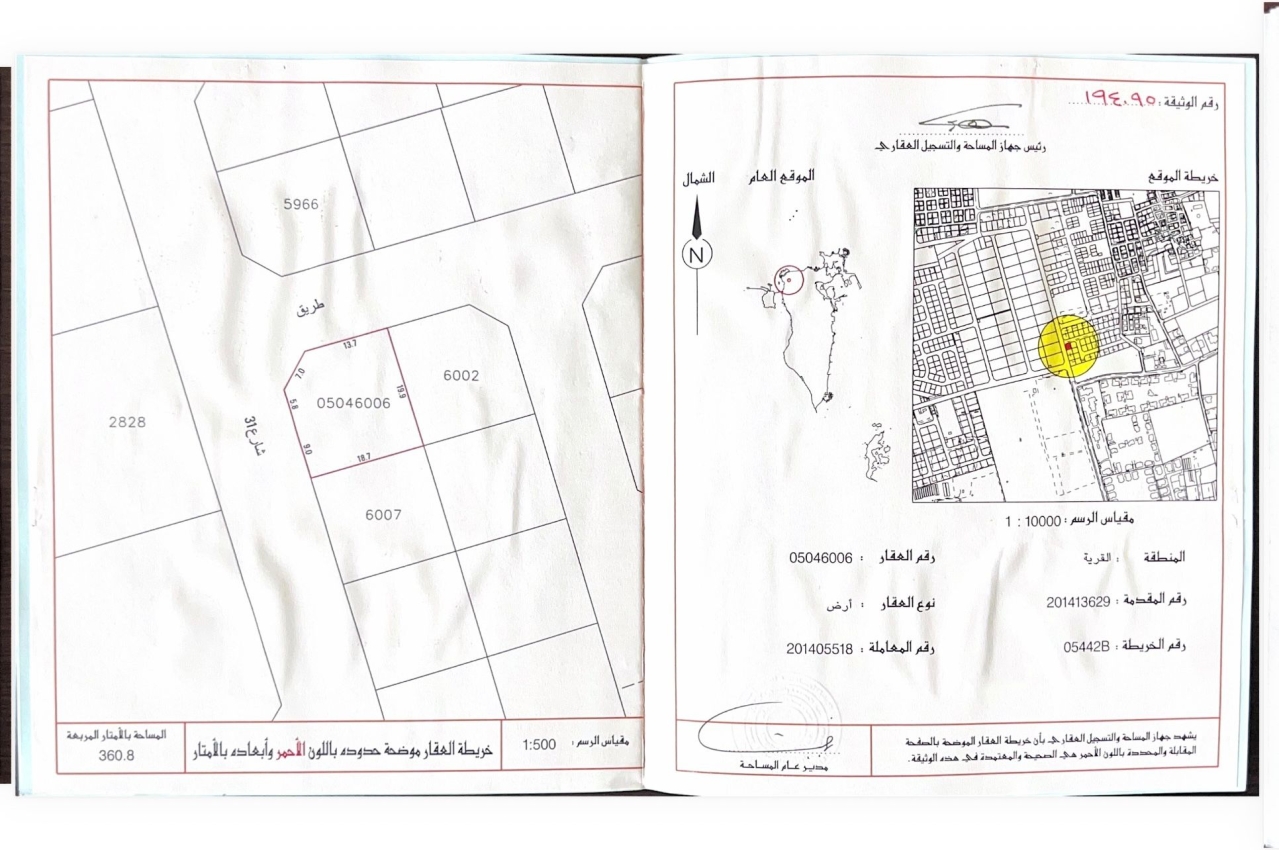 رقم الوثيقة : ١٩٤٠٩٥
رئيس جهاز المساحة والتسجيل العقاري
خريطة الموقع
الموقع العام
الشمال
N
مقياس الرسم : 10000 : 1
المنطقة : القرية
رقم العقار : 05046006
رقم المقدمة : 201413629
نوع العقار : أرض
رقم الخريطة : 05442B
رقم المعاملة : 201405518
يشهد جهاز المساحة والتسجيل العقاري بأن خريطة العقار الموضحة بالصفحة
المقابلة والمحددة باللون الأحمر هي الصحيحة والمعتمدة في هذه الوثيقة.
مدير عام المساحة
5966
طريق
13.7
7.0
19.9
6002
05046006
5.8
2828
شارع 31
9.0
18.7
6007
مقياس الرسم : 1:500
خريطة العقار موضحة حدوده باللون الأحمر وأبعاده بالأمتار
المساحة بالأمتار المربعة
360.8